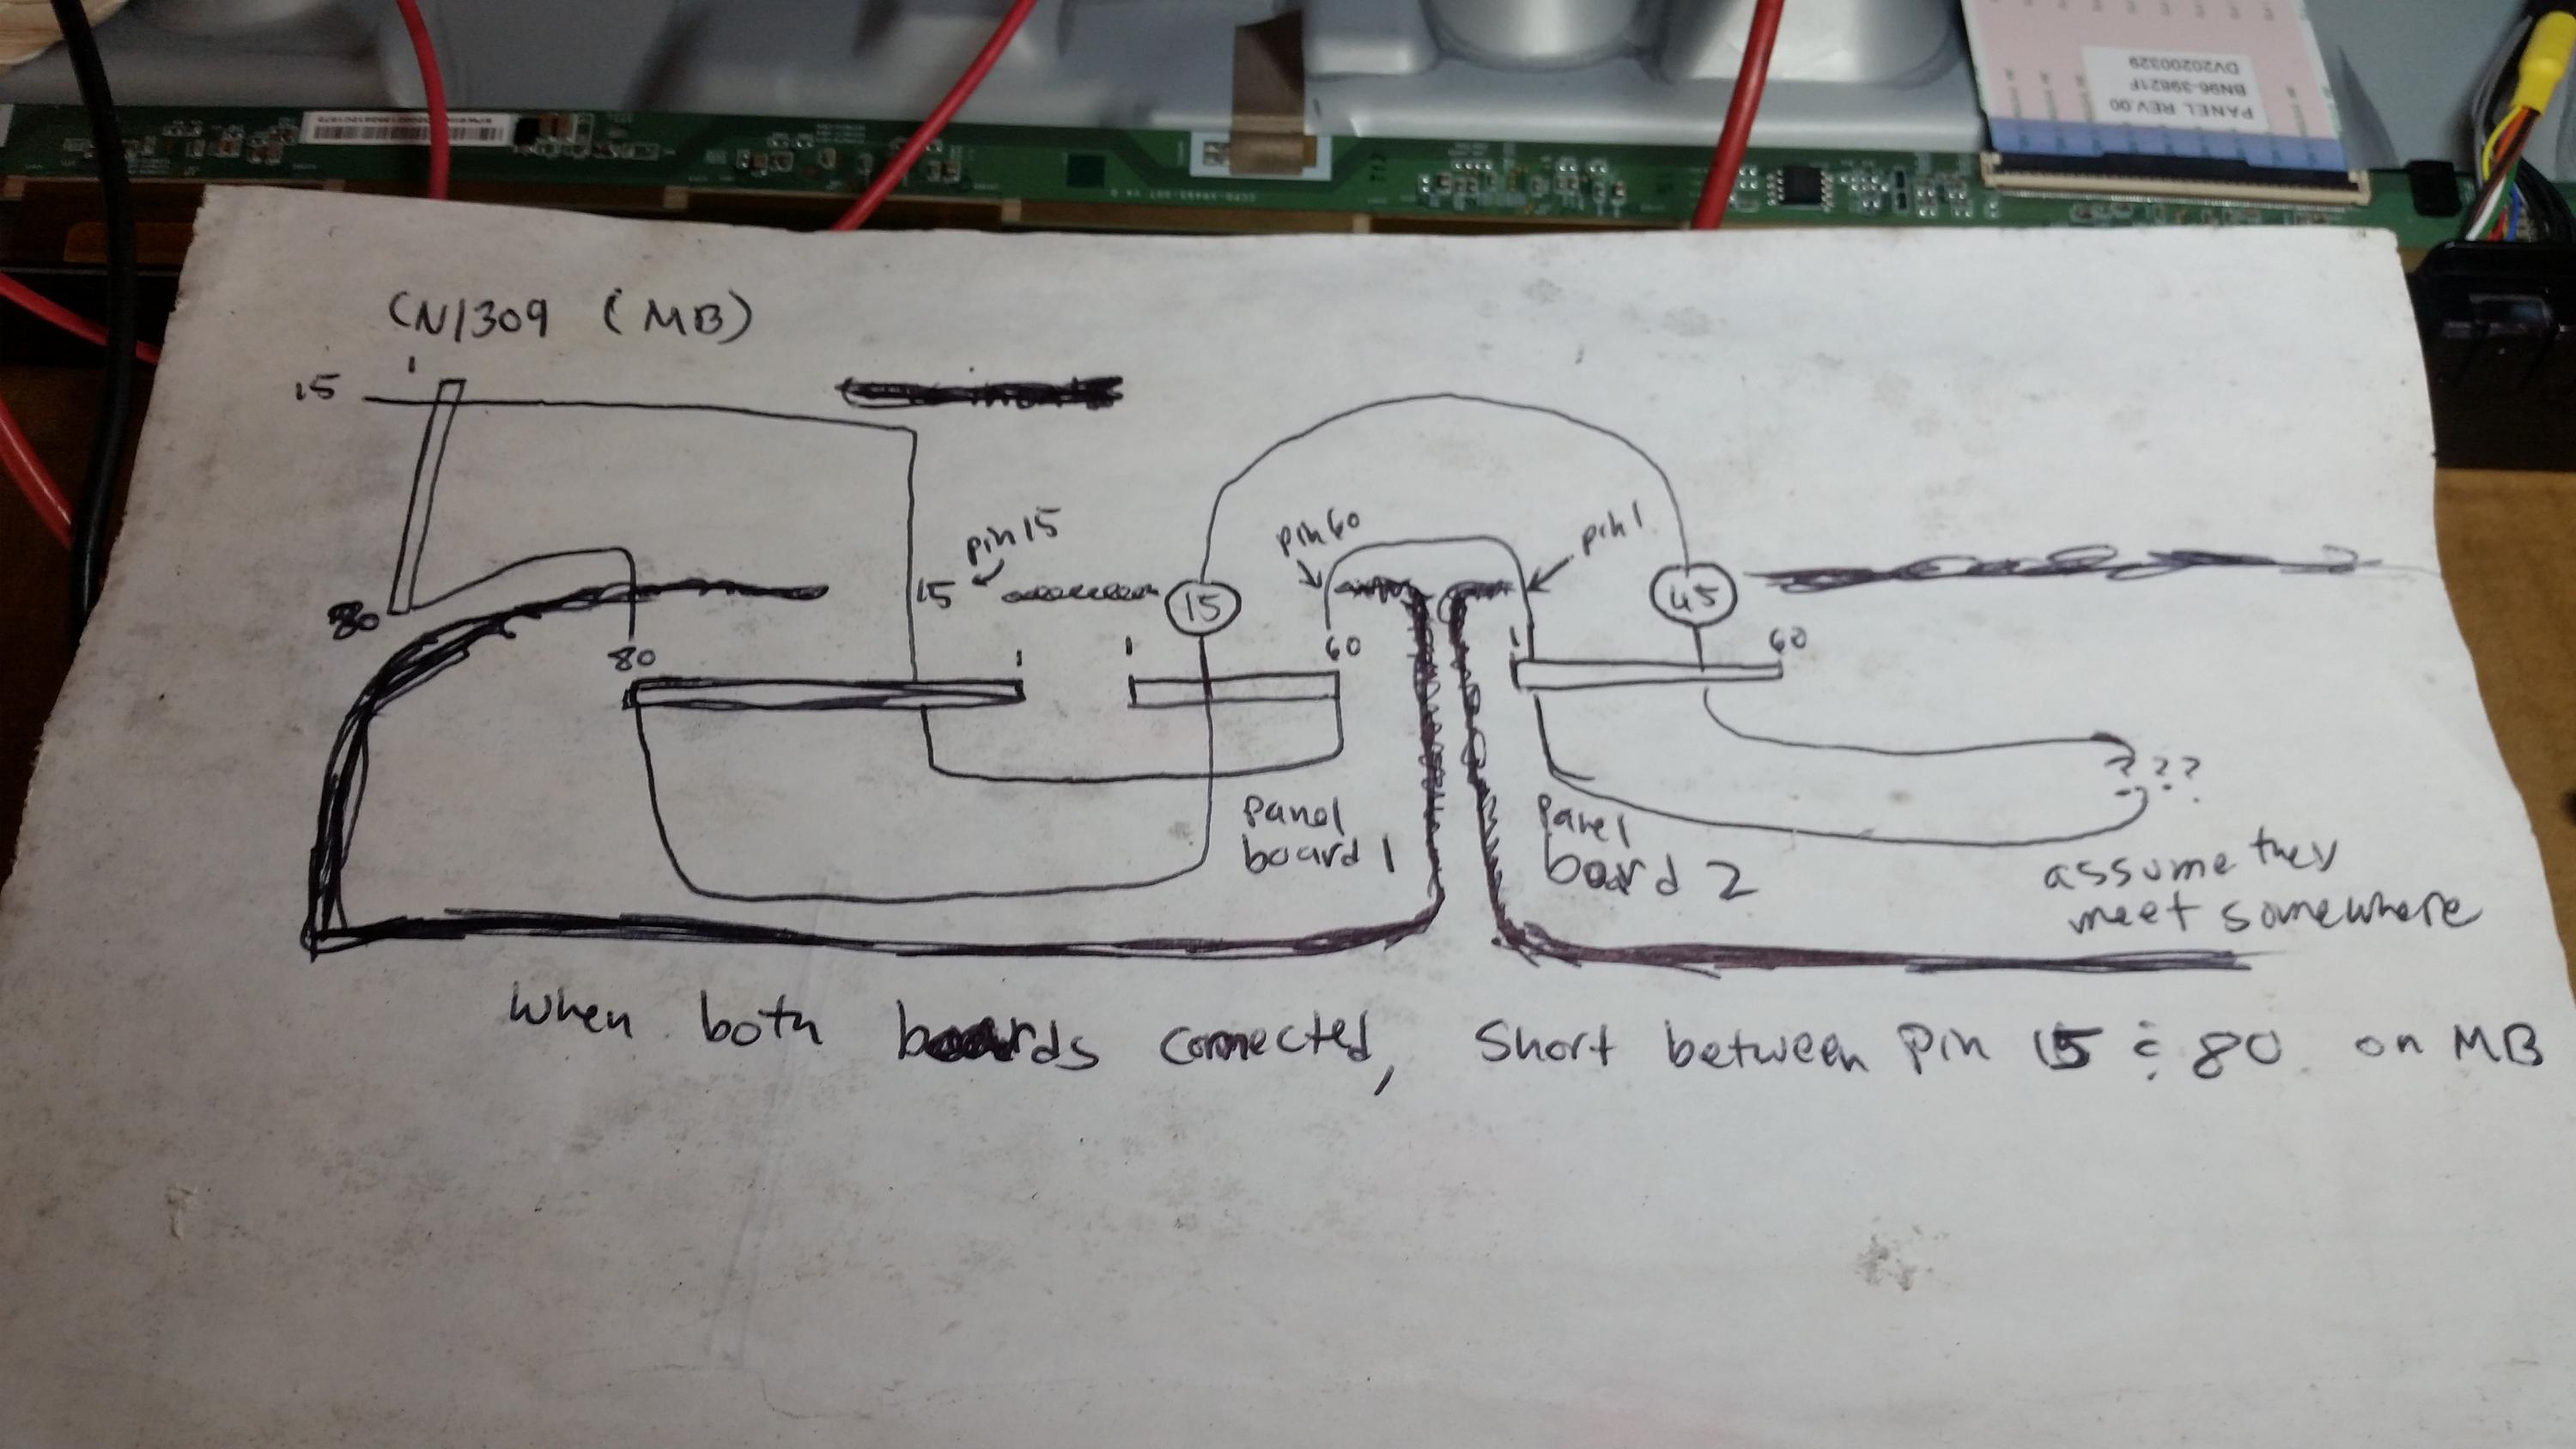 PANEL REV.00
BN96-39821F
DV20200329
CN1309 (MB)
1
15
80
80
pin 15
15
1
1
15
pin 60
60
pin 1
1
45
60
Panel
board 1
Panel
board 2
???
assume they
meet somewhere
When both boards connected, Short between Pin 15 & 80 on MB